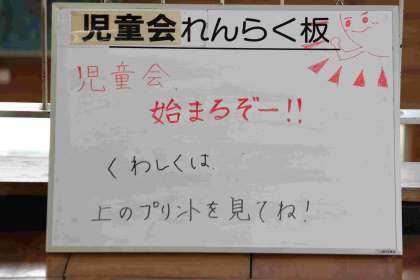 児童会れんらく板
児童会、
始まるぞー!!
くわしくは
上のプリントを見てね!